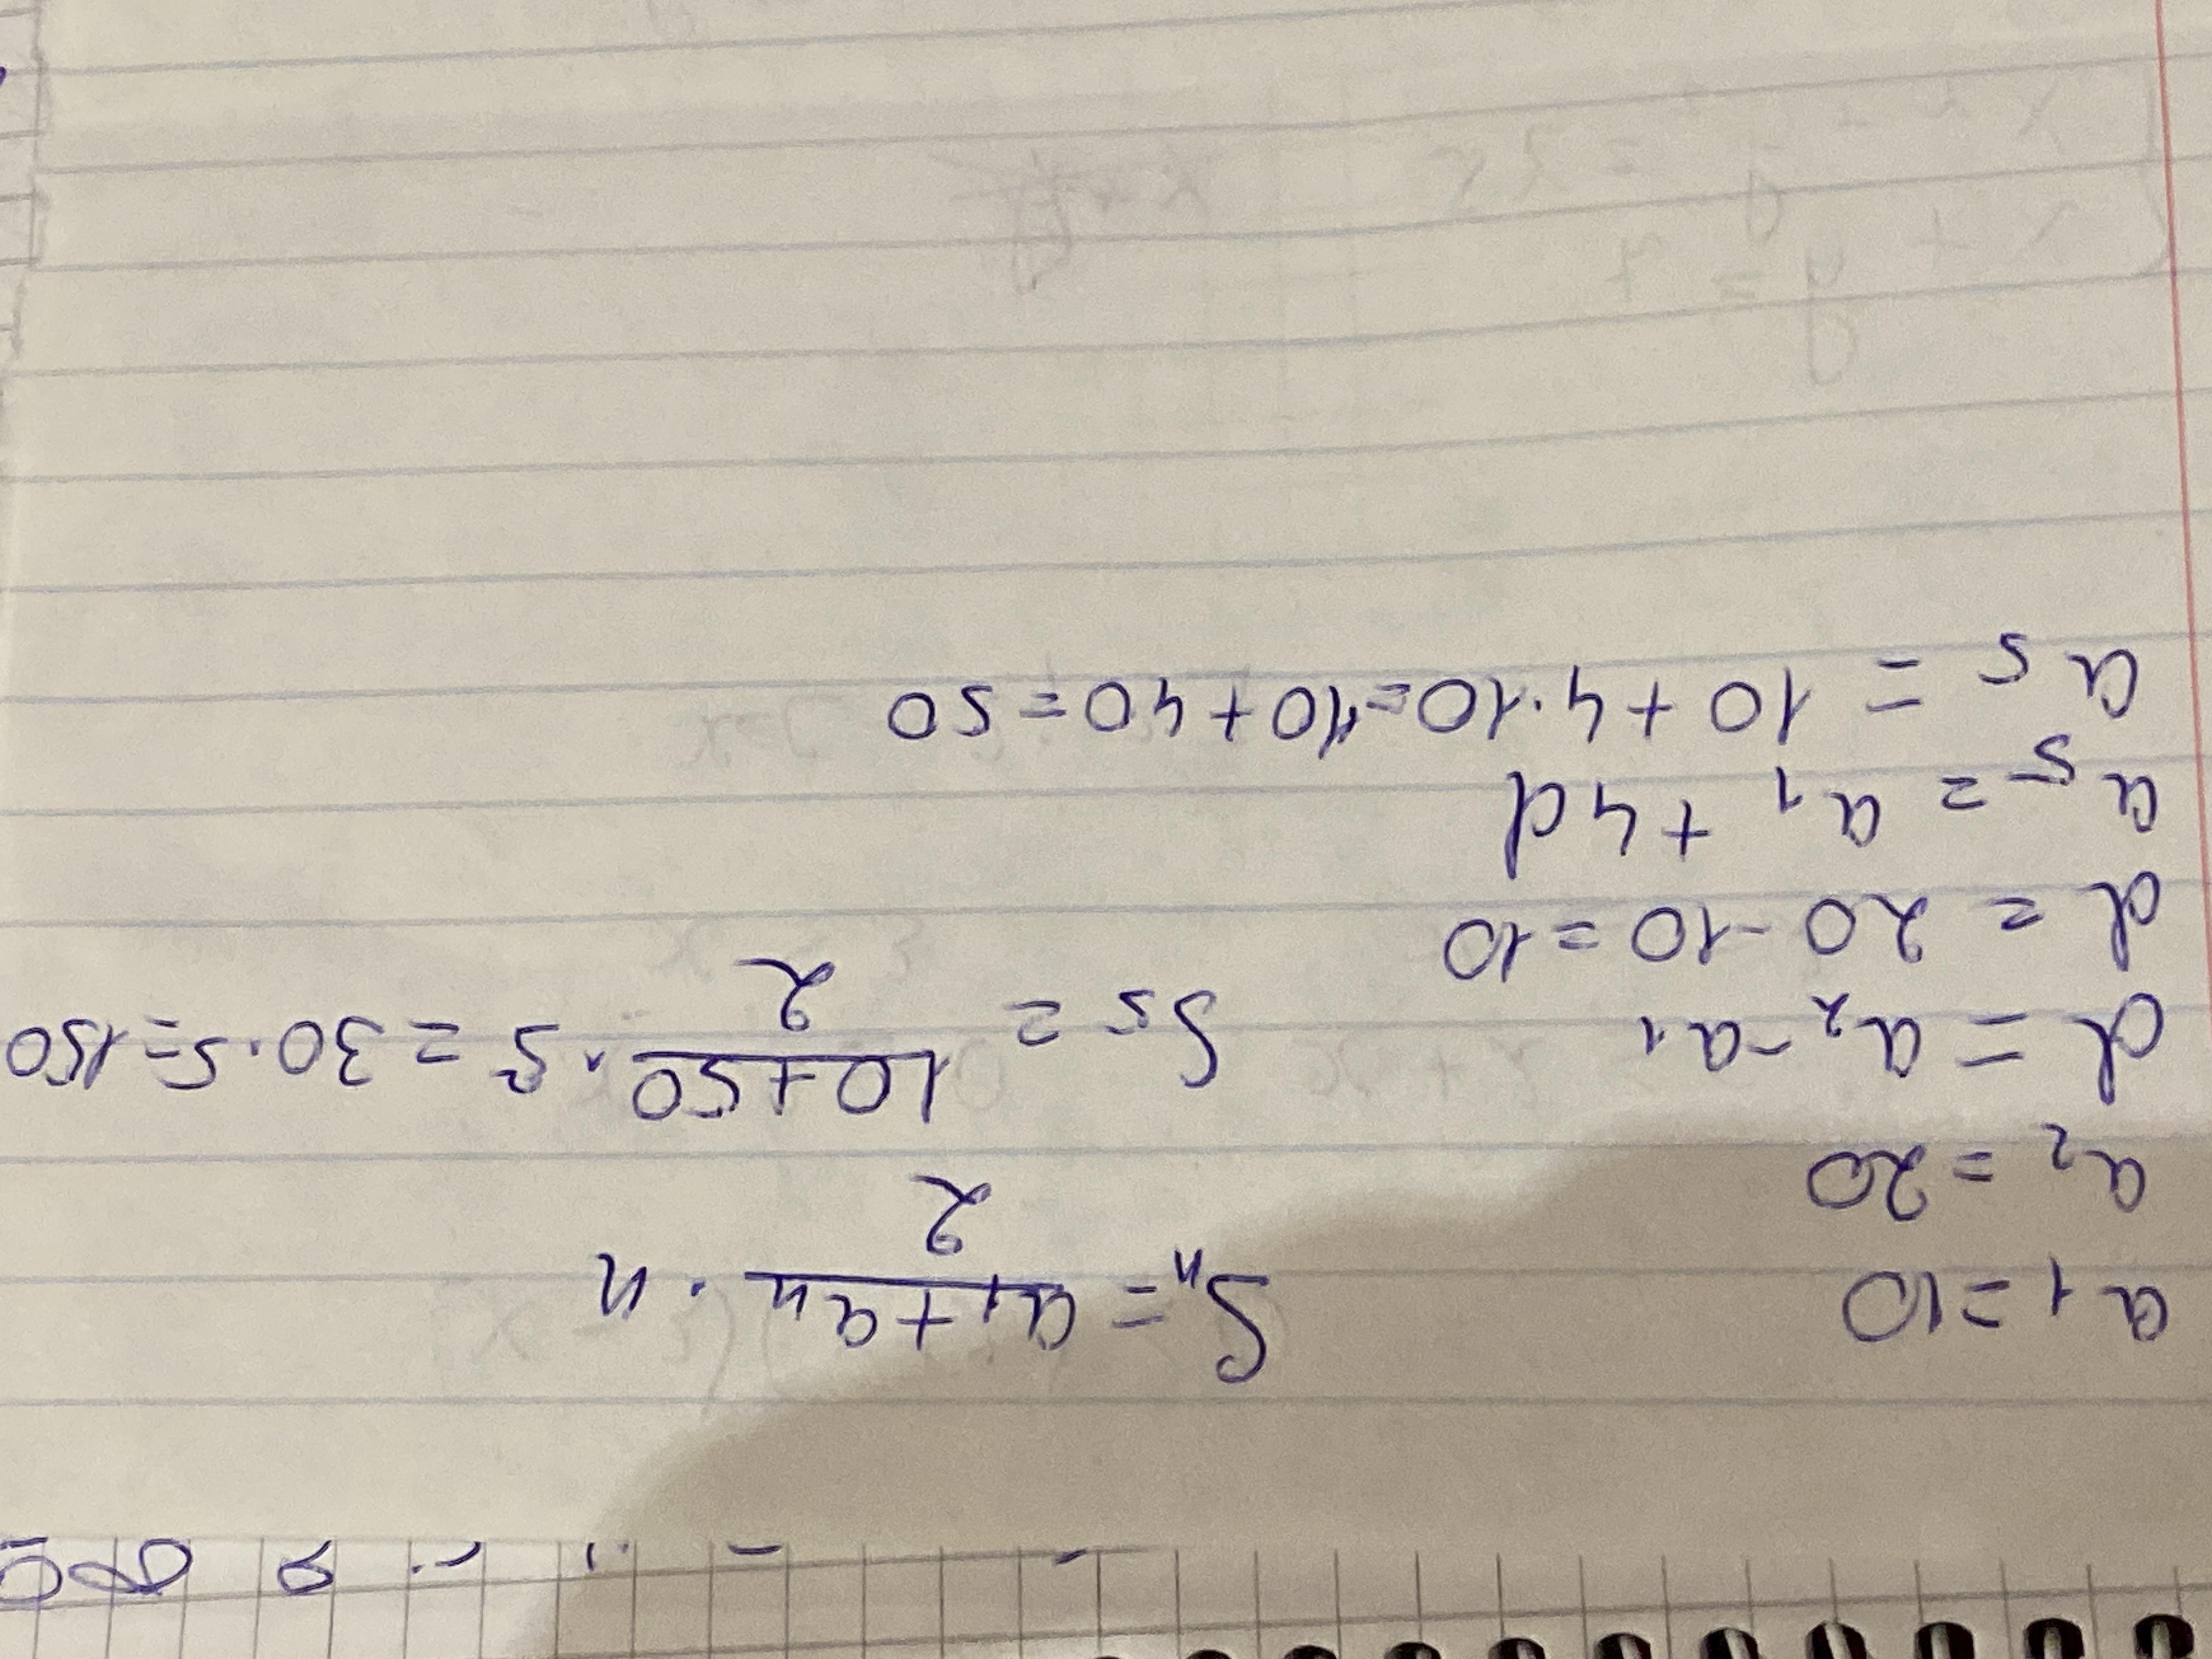 a₁ = 10
a₂ = 20
d = a₂ - a₁
d = 20 - 10 = 10
a₅ = a₁ + 4d
a₅ = 10 + 4·10 = 10 + 40 = 50
Sₙ = (a₁ + aₙ)/2 · n
S₅ = (10+50)/2 · 5 = 30·5 = 150